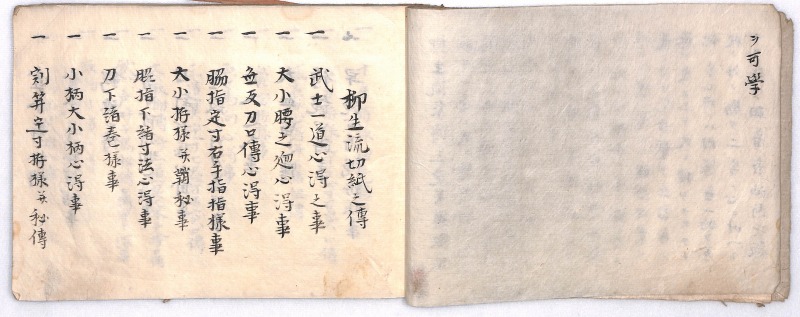 ヨ可學
柳生流切紙之傳
一 武士一道心得之事
一 大小腰之廻心得事
一 無反刀口傳心得事
一 脇指定寸右手指指様事
一 大小拵様并鞘秘事
一 脇指下諸寸法心得事
一 刀下諸色様事
一 小柄大小柄心得事
一 割笄定寸拵様并秘傳